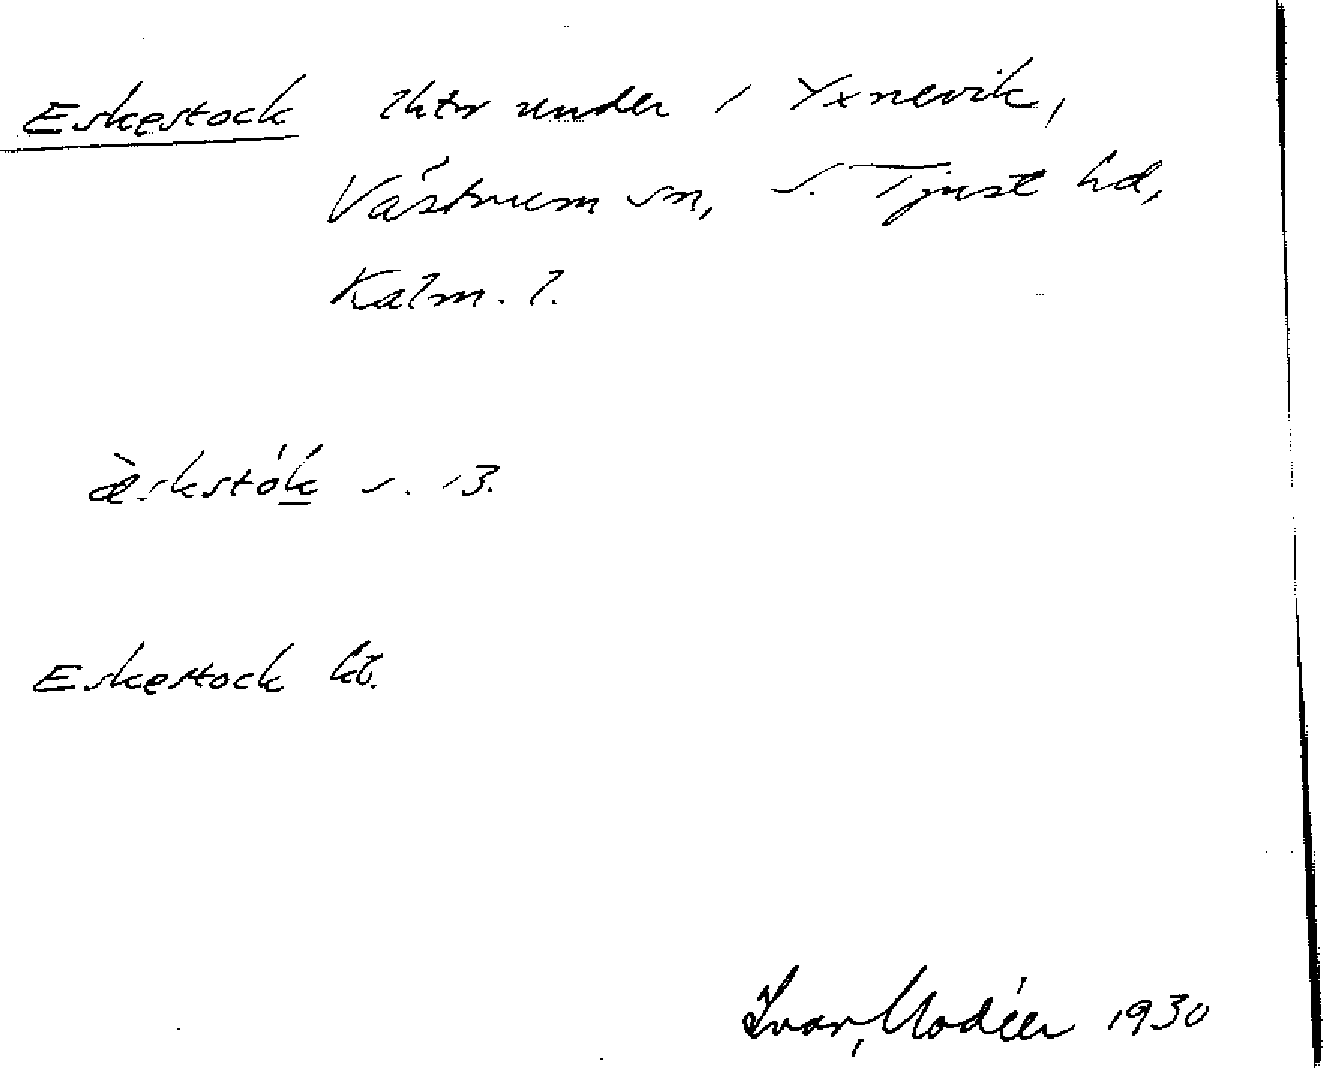 Eskestock lhtr under 1 Yxnevik,
Västrum sn, S. Tjust hd,
Kalm. l.
æ̀skstók s. 13.
Eskestock kt.
Ivar Modéer 1930